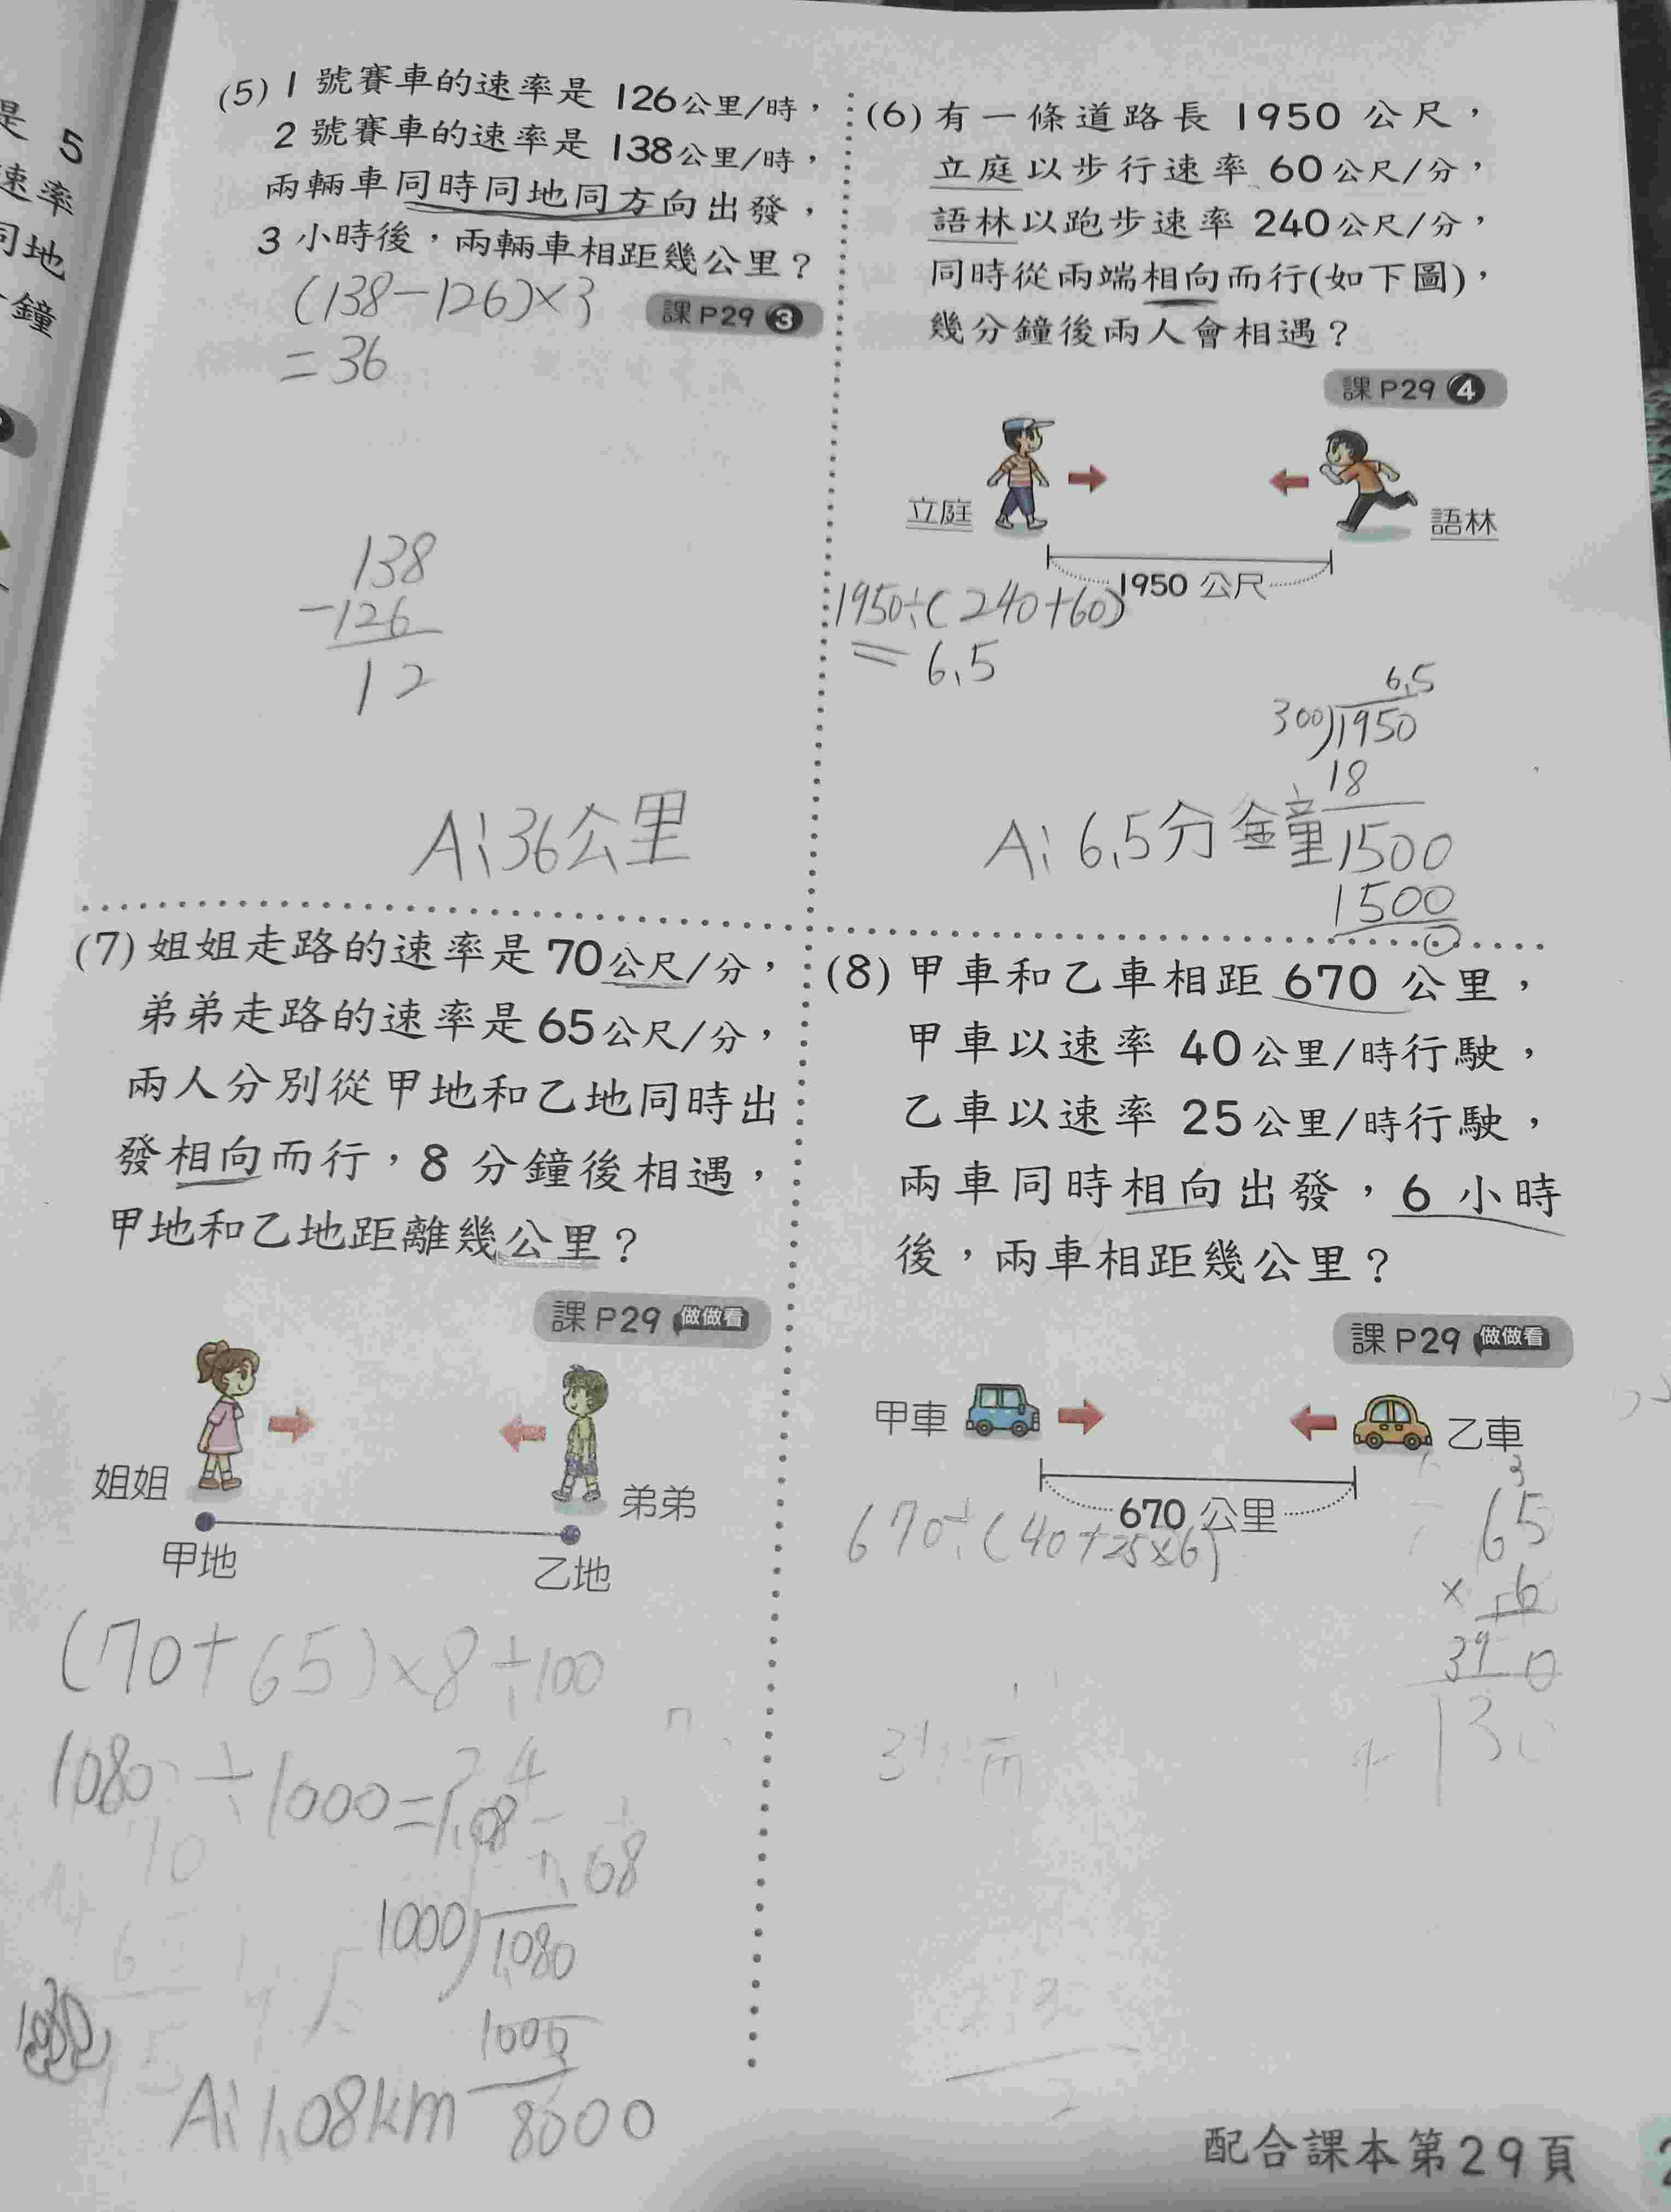 是 5
速率
同地
鐘
(5) 1 號賽車的速率是 126公里/時，
2 號賽車的速率是 138公里/時，
兩輛車同時同地同方向出發，
3 小時後，兩輛車相距幾公里？
(138-126)×3
課P29 ❸
=36
138
-126
12
A:36公里
(6) 有一條道路長 1950 公尺，
立庭以步行速率 60公尺/分，
語林以跑步速率 240公尺/分，
同時從兩端相向而行(如下圖)，
幾分鐘後兩人會相遇？
課P29 ❹
立庭
語林
1950 公尺
1950÷(240+60)
=6.5
6.5
300)1950
18
1500
1500
0
A:6.5分鐘
(7) 姐姐走路的速率是70公尺/分，
弟弟走路的速率是65公尺/分，
兩人分別從甲地和乙地同時出
發相向而行，8 分鐘後相遇，
甲地和乙地距離幾公里？
課P29 做做看
姐姐
弟弟
甲地
乙地
(70+65)×8÷100
1080÷1000=1.08
1000)1080
1000
8000
A:1.08km
(8) 甲車和乙車相距 670 公里，
甲車以速率 40公里/時行駛，
乙車以速率 25公里/時行駛，
兩車同時相向出發，6 小時
後，兩車相距幾公里？
課P29 做做看
甲車
乙車
670 公里
670÷(40+25×6)
3
65
× 6
390
配合課本第29頁